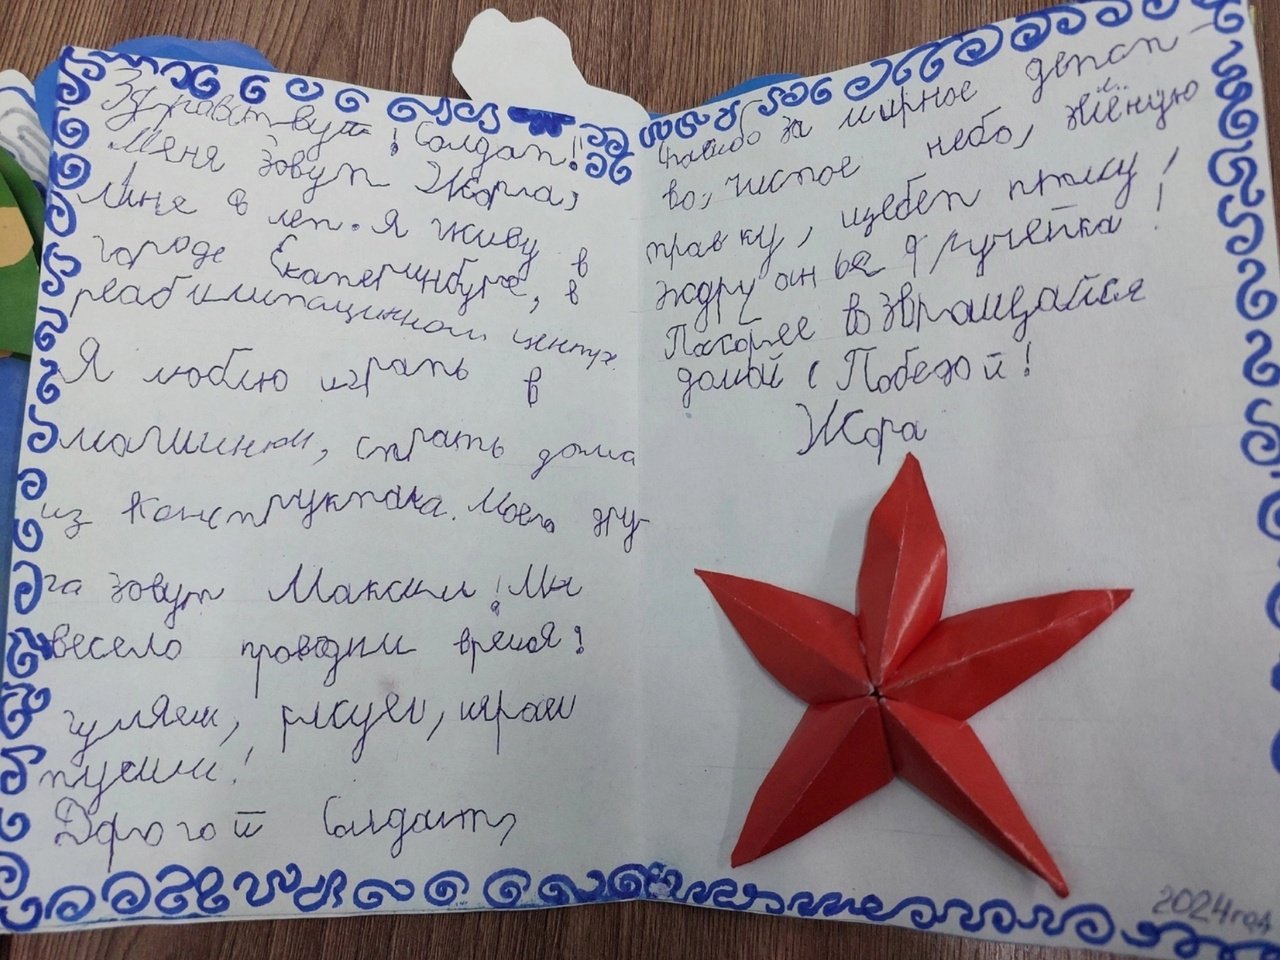 Здравствуй! Солдат!
Меня зовут Жора,
Мне 8 лет. Я живу в
городе Екатеринбурге, в
реабилитационном центре
Я люблю играть в
машинки, строить дома
из конструктора. Моего дру-
га зовут Максим! Мы
весело проводим время!
гуляем, рисуем, играем
Дорогой Солдат,
Спасибо за мирное детст-
во, чистое небо, зелёную
травку, щебет птиц,
журчанье ручейка!
Поскорее возвращайся
домой с Победой!
Жора
2024 год